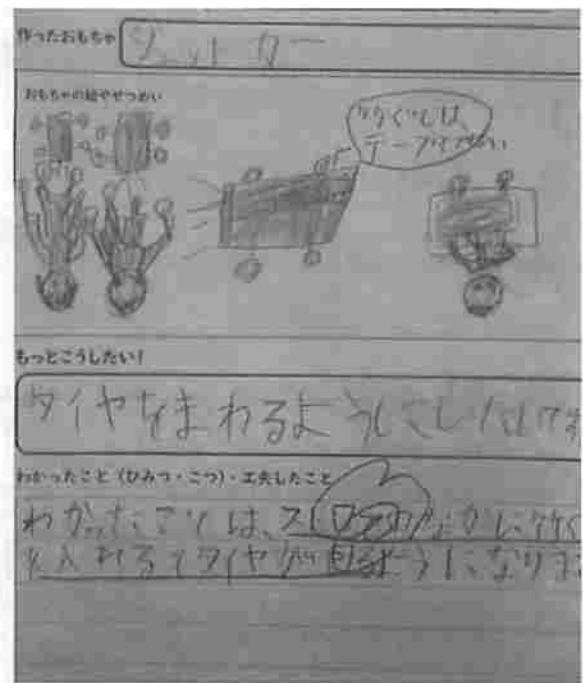 作ったおもちゃ
ジェットカー
おもちゃの絵やせつめい
竹ぐしは、
テープで
もっとこうしたい!
タイヤをまわるようにしたいです
わかったこと(ひみつ・こつ)・工夫したこと
わかったことは、ストローのなかに竹ぐ
を入れるとタイヤが回るようになりま